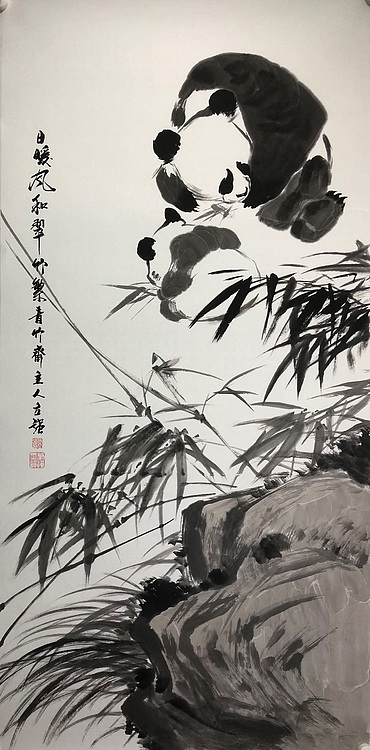 日暖风和翠竹繁青竹斋主人左强